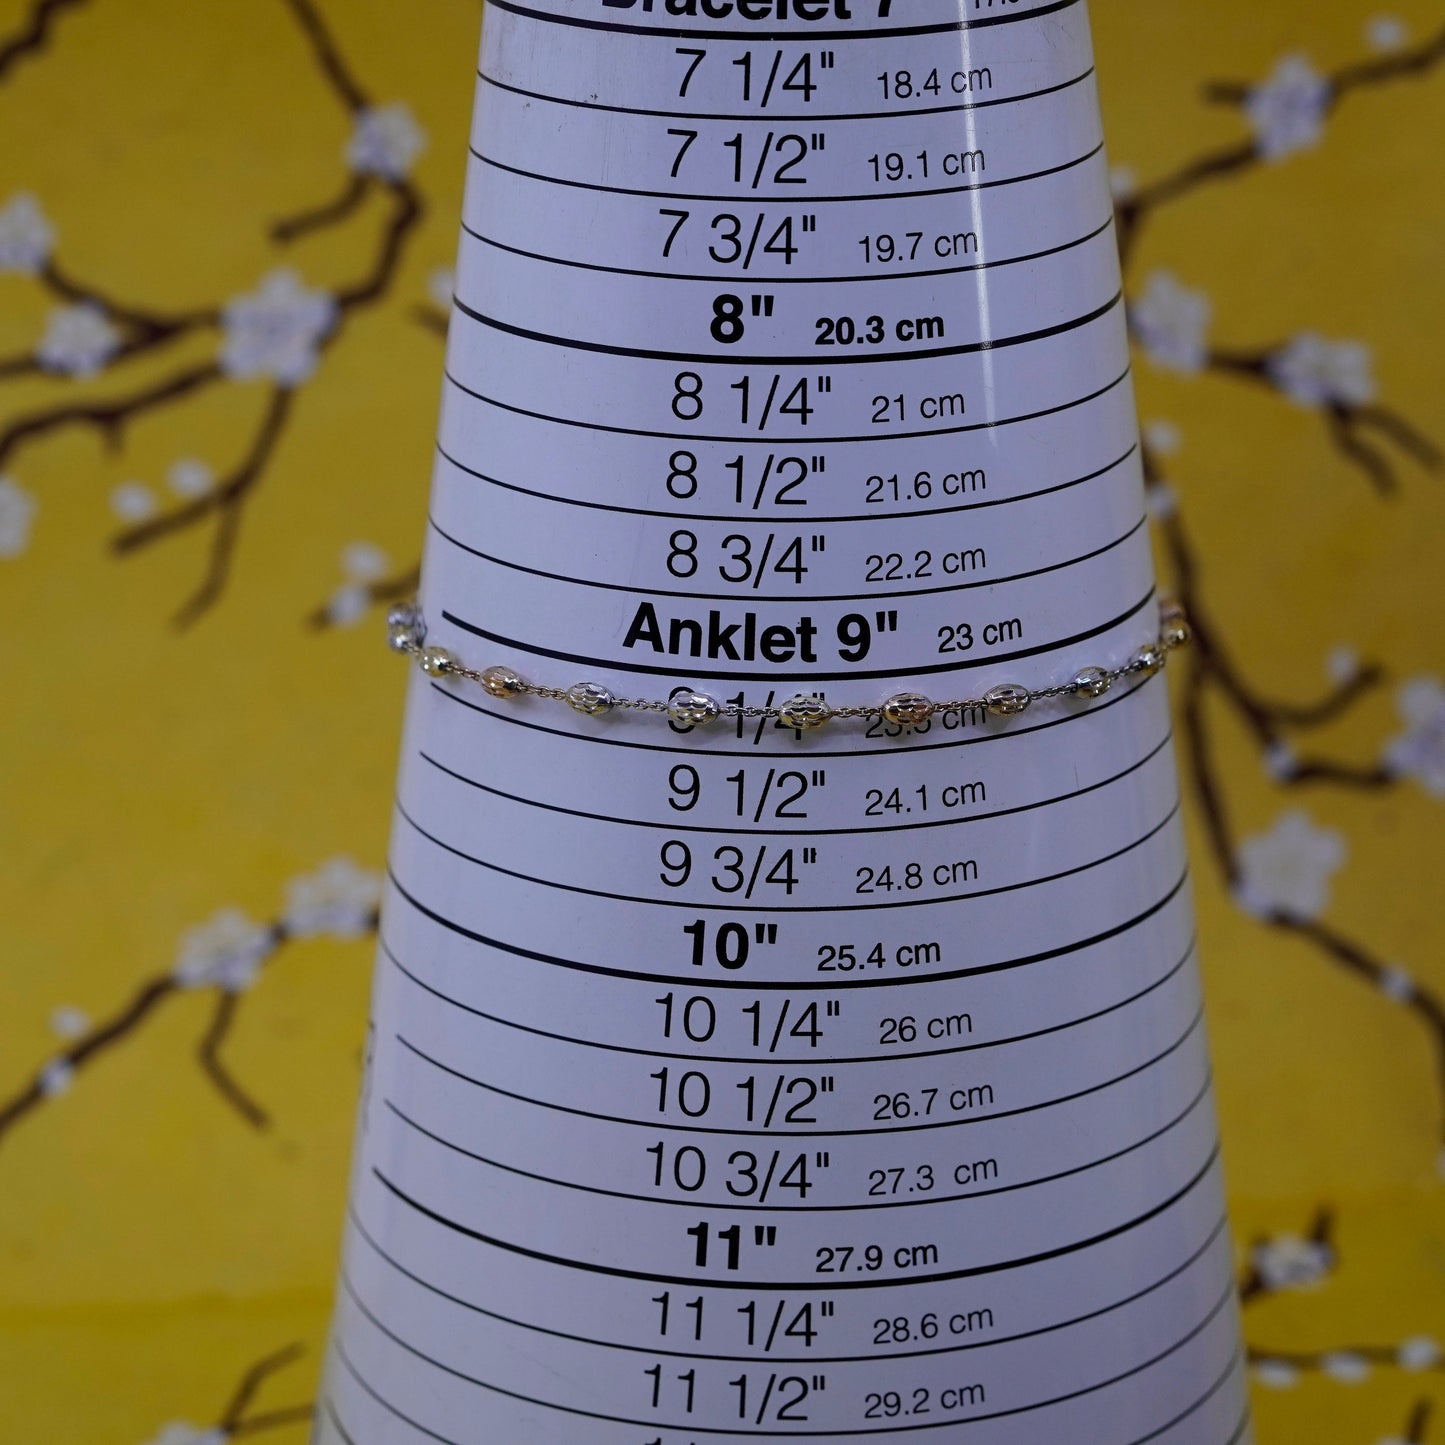 Bracelet 7"
7 1/4" 18.4 cm
7 1/2" 19.1 cm
7 3/4" 19.7 cm
8" 20.3 cm
8 1/4" 21 cm
8 1/2" 21.6 cm
8 3/4" 22.2 cm
Anklet 9" 23 cm
9 1/4" 23.5 cm
9 1/2" 24.1 cm
9 3/4" 24.8 cm
10" 25.4 cm
10 1/4" 26 cm
10 1/2" 26.7 cm
10 3/4" 27.3 cm
11" 27.9 cm
11 1/4" 28.6 cm
11 1/2" 29.2 cm